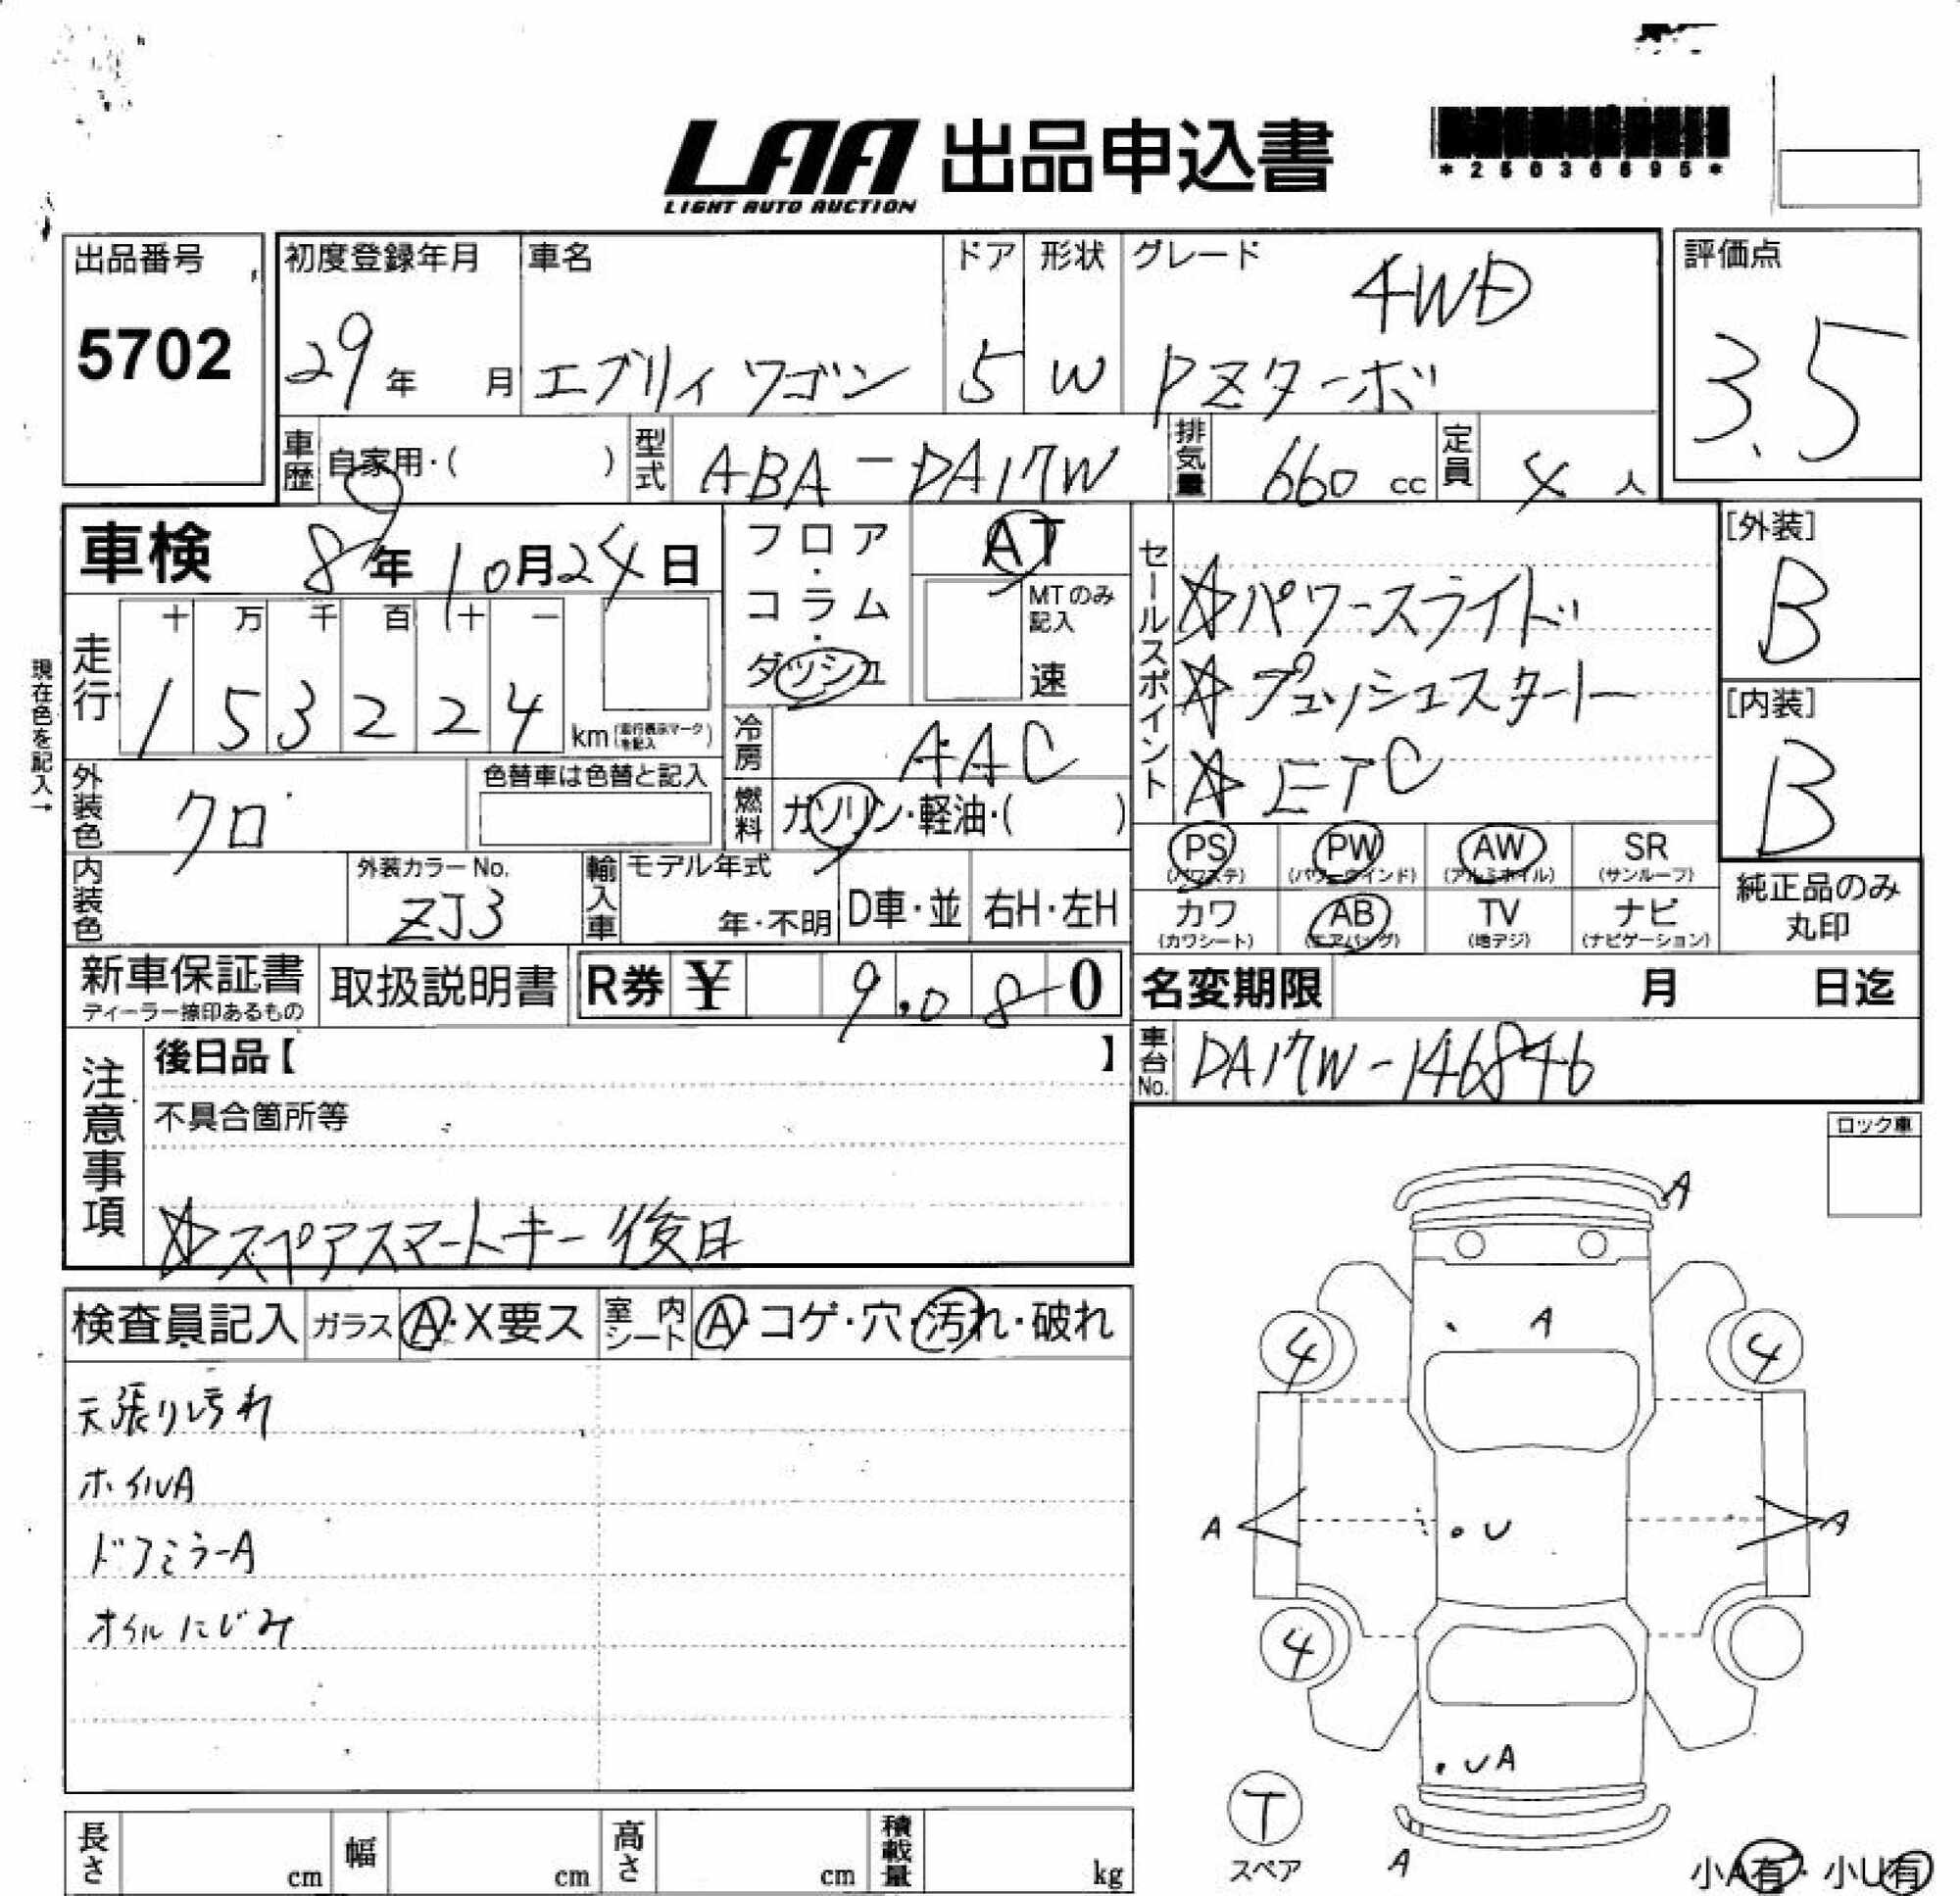 LAA 出品申込書
LIGHT AUTO AUCTION
*25036695*
出品番号
5702
初度登録年月
29年 月
車名
エブリィ ワゴン
ドア
5
形状
W
グレード
4WD
PZターボ
評価点
3.5
車歴 自家用・( )
型式 ABA-DA17W
排気量 660 cc
定員 4 人
車検 8年 10月 24日
フロア・コラム・ダッシュ
AT
MTのみ記入
速
セールスポイント
☆パワースライド
☆プッシュスタート
☆ETC
[外装]
B
[内装]
B
現在色を記入→
走行
十 万 千 百 十 一
1 5 3 2 2 4 km(走行表示マークを記入)
冷房 AAC
外装色 クロ
色替車は色替と記入
燃料 ガソリン・軽油・( )
PS (パワステ) PW (パワーウインド) AW (アルミホイル) SR (サンルーフ)
カワ (カワシート) AB (エアバッグ) TV (地デジ) ナビ (ナビゲーション)
純正品のみ丸印
内装色
外装カラーNo.
ZJ3
輸入車
モデル年式
年・不明
D車・並
右H・左H
新車保証書
ディーラー捺印あるもの
取扱説明書
R券 ¥ 9,080
名変期限 月 日迄
車台No. DA17W-146846
注意事項
後日品【 】
不具合箇所等
☆スペアスマートキー後日
ロック車
検査員記入 ガラス A・X要ス 室内シート A・コゲ・穴・汚れ・破れ
天張り汚れ
ホイルA
ドアミラーA
オイルにじみ
A
A
4
4
A
U
A
4
UA
T
スペア
A
小A有・小U有
長さ cm 幅 cm 高さ cm 積載量 kg